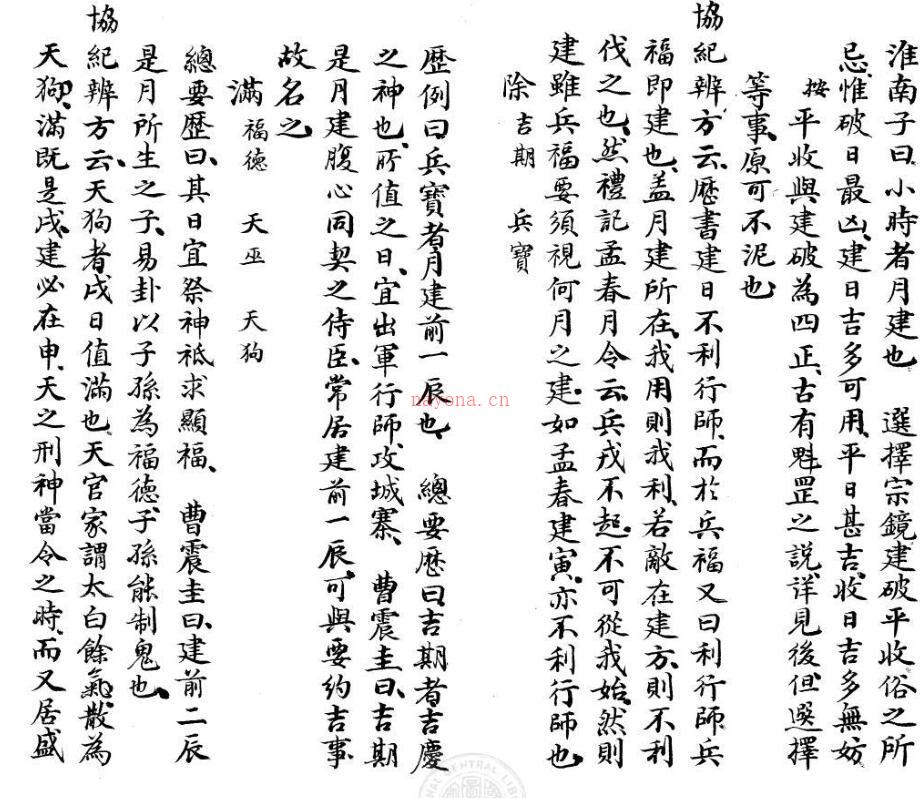 淮南子曰、小時者月建也　選擇宗鏡建破平收俗之所
忌、惟破日最凶、建日吉多可用、平日甚吉、收日吉多無妨
按平收與建破為四正、古有魁罡之說、詳見後、但選擇
等事、原可不泥也
協紀辨方云、歷書建日不利行師、而於兵福又曰利行師兵
福即建也、蓋月建所在、我用則我利、若敵在建方、則不利
伐之也、然禮記孟春月令云、兵戎不起、不可從我始、然則
建雖兵福要須視何月之建、如孟春建寅、亦不利行師也
除 吉期　兵寶
歷例曰、兵寶者月建前一辰也　總要歷曰吉期者吉慶
之神也、所值之日、宜出軍行師攻城寨、曹震圭曰、吉期
是月建腹心同契之侍臣、常居建前一辰、可與要約吉事
故名之
滿 福德　天巫　天狗
總要歷曰、其日宜祭神祗求顯福、曹震圭曰、建前二辰
是月所生之子、易卦以子孫為福德、子孫能制鬼也、
協紀辨方云、天狗者、戌日值滿也、天官家謂太白餘氣、散為
天狗、滿既是戌、建必在申、天之刑神當令之時、而又居盛
nayona.cn